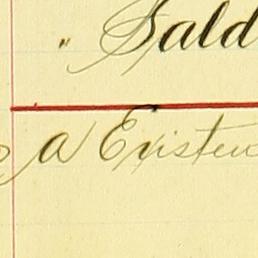 " Sald
a Existen